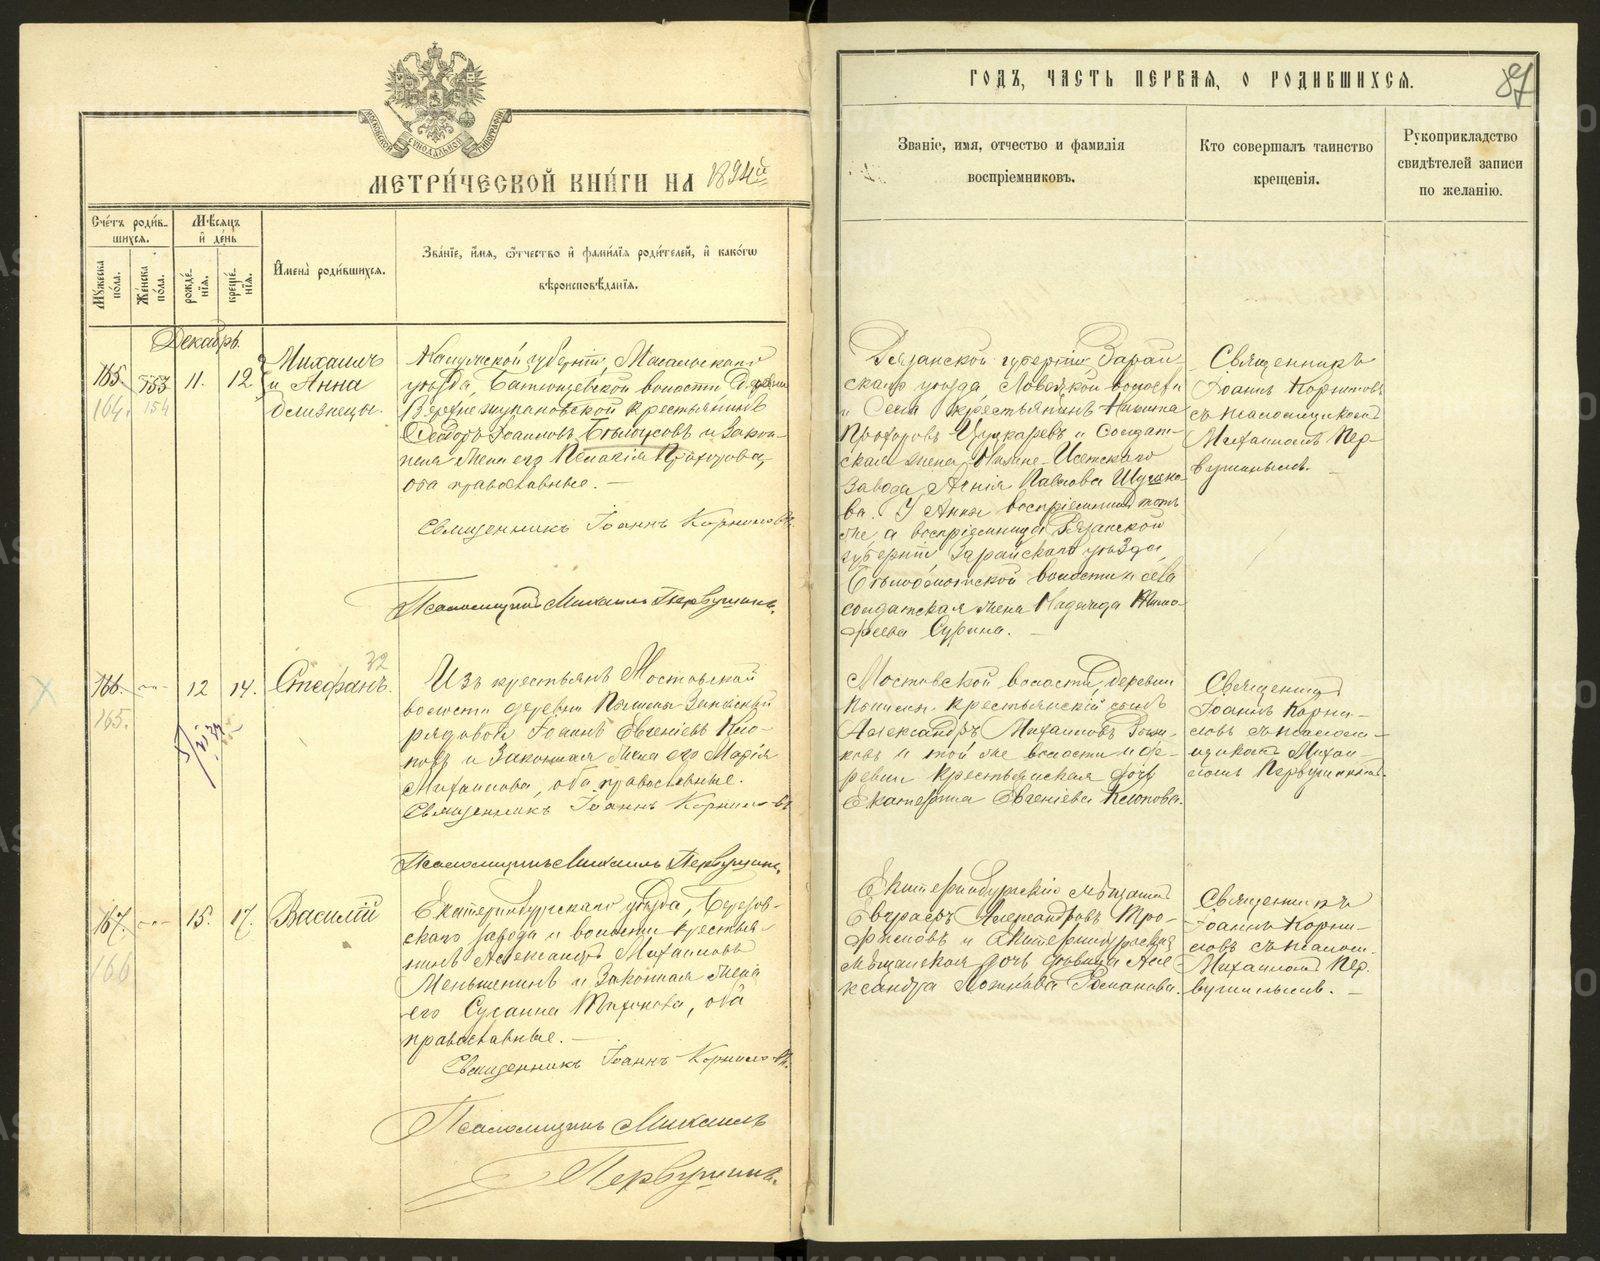 МОСКОВСКОЙ СѴНОДАЛЬНОЙ ТИПОГРАФІИ
МЕТРИ́ЧЕСКОЙ КНИ́ГИ НА 1894й
Счетъ роди́вшихся.
Мѣсяцъ и́ де́нь
Мꙋ́жеска по́ла.
Же́нска по́ла.
рожде́нїѧ.
креще́нїѧ.
И҆мена̀ роди́вшихся.
Зва́нїе, и҆́мѧ, ѻ҆́тчество и҆ фами́лїѧ роди́телей, и҆ како́гѡ
вѣроисповѣ́данїѧ.
Декабрь
165. 153 11. 12.
164. 154
Михаилъ
и Анна
близнецы.
Калужской губерніи, Мосальскаго
уѣзда, волости, деревни
крестьянинъ
Ѳеодоръ Іоанновъ Бѣлоусовъ и закон-
ная жена его Пелагія Прохорова,
оба православные. —
Священникъ Іоаннъ Корниловъ.
Псаломщикъ Михаилъ Первушинъ.
32
166. 12 14. Стефанъ.
165.
Изъ крестьянъ Мостовской
волости деревни запасный
рядовой Іоаннъ Евгеніевъ Клю-
повъ и законная жена его Марія
Михаилова, оба православные.
Священникъ Іоаннъ Корниловъ
Псаломщикъ Михаилъ Первушинъ.
167. 15. 17. Василій
166
Екатеринбургскаго уѣзда, Березов-
скаго завода и волости крестья-
нинъ Александръ Михаиловъ
Меньшенинъ и законная жена
его Сусанна Тихонова, оба
православные. —
Священникъ Іоаннъ Корниловъ.
Псаломщикъ Михаилъ
Первушинъ.
ГОДЪ, ЧАСТЬ ПЕРВАЯ, О РОДИВШИХСЯ.
87
Званіе, имя, отчество и фамилія
воспріемниковъ.
Кто совершалъ таинство
крещенія.
Рукоприкладство
свидѣтелей записи
по желанію.
Рязанской губерніи Зарай-
скаго уѣзда, Ловецкой волости
и села крестьянинъ Никита
Прохоровъ и солдат-
ская жена Нижне-Исетскаго
завода Агнія Павлова
ва. У Анны воспріемникъ тотъ
же, а воспріемница Рязанской
губерніи Зарайскаго уѣзда,
Бѣлоомутской волости и села
солдатская жена Надежда Тимо-
феева Сурина. —
Священникъ
Іоаннъ Корниловъ
съ псаломщикомъ
Михаиломъ Пер-
вушинымъ. —
Мостовской волости, деревни
крестьянскій сынъ
Александръ Михаиловъ
и той же волости и де-
ревни крестьянская дочь
Екатерина Евгеніева Клюпова.
Священникъ
Іоаннъ Корни-
ловъ съ псалом-
щикомъ Михаи-
ломъ Первушинымъ.
Екатеринбургскій мѣщанинъ
Александровъ Тро-
фимовъ и Екатеринбургская
мѣщанская дочь дѣвица Але-
ксандра Романова.
Священникъ
Іоаннъ Корни-
ловъ съ псалом.
Михаиломъ Пер-
вушинымъ. —